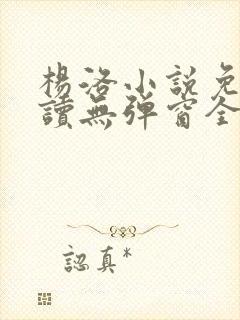 楊洛小說免
讀無彈窗全
認真*